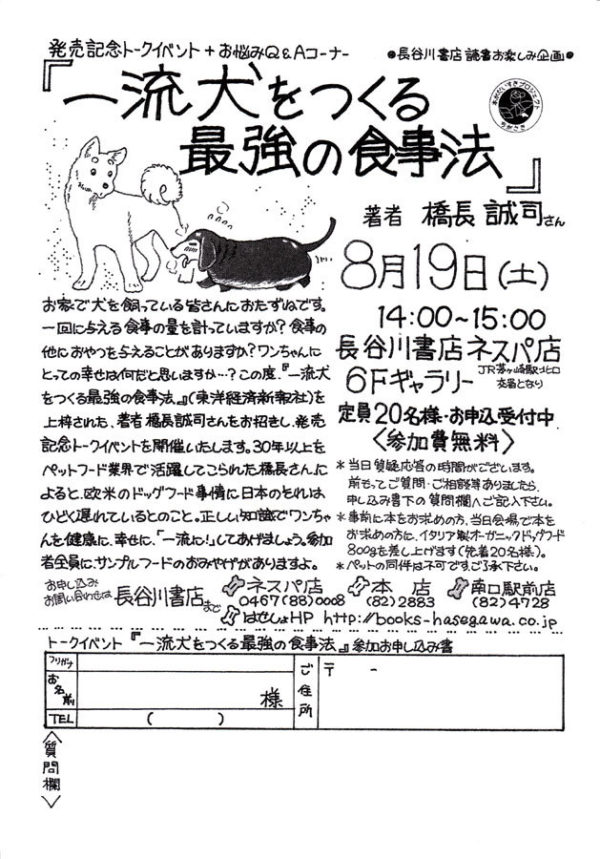 発売記念トークイベント+お悩みQ&Aコーナー
●長谷川書店 読書お楽しみ企画●
『一流犬をつくる
最強の食事法』
ちがさき
著者 橋長誠司さん
8月19日(土)
14:00~15:00
長谷川書店ネスパ店
6Fギャラリー JR茅ヶ崎駅北口
交番となり
定員20名様・お申込受付中
〈参加費無料〉
お家で犬を飼っている皆さんにおたずねです。
一回に与える食事の量を計っていますか?食事の
他におやつを与えることがありますか?ワンちゃんに
とっての幸せは何だと思いますか…?この度、『一流犬
をつくる最強の食事法』(東洋経済新報社)を
上梓された、著者橋長誠司さんをお招きし、発売
記念トークイベントを開催いたします。30年以上を
ペットフード業界で活躍してこられた橋長さんに
よると、欧米のドッグフード事情に日本のそれは
ひどく遅れているとのこと。正しい知識でワンちゃ
んを健康に、幸せに、「一流に!」してあげましょう。参加
者全員に、サンプルフードのおみやげがありますよ。
*当日質疑応答の時間がございます。
前もってご質問・ご相談等ありましたら、
申し込み書下の質問欄へご記入下さい。
*事前に本をお求めの方、当日会場で本を
お求めの方に、イタリア製オーガニックドッグフード
800gを差し上げます(先着20名様)。
*ペットの同伴は不可です。ご了承下さい。
お申し込み
お問い合わせは 長谷川書店まで
ネスパ店 0467(88)0008
本店 (82)2883
南口駅前店 (82)4728
はせしょHP http://books-hasegawa.co.jp
トークイベント『一流犬をつくる最強の食事法』参加お申し込み書
フリガナ
お名前 様
TEL ( )
ご住所 〒 -
〈質問欄〉